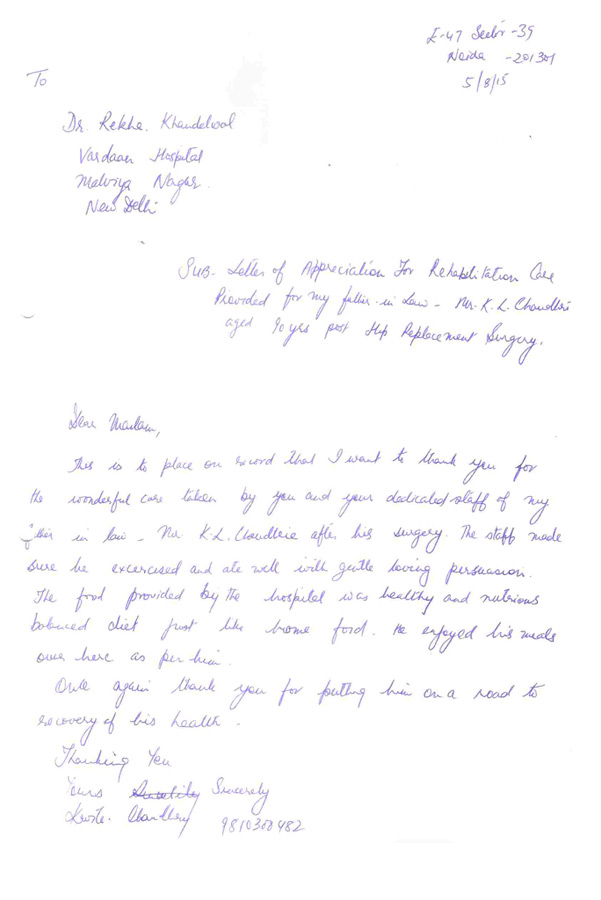 E-47 Sector -39
Noida -201301
5/8/15
To
Dr. Rekha. Khandelwal
Vardaan Hospital
Malviya Nagar.
New Delhi
SUB- Letter of Appreciation For Rehabilitation Care
Provided for my father-in Law - Mr. K. L. Chaudhrie
aged 90 yrs post Hip Replacement Surgery.
Dear Madam,
This is to place on record that I want to thank you for
the wonderful care taken by you and your dedicated staff of my
father in law - Mr. K.L. Chaudhrie after his surgery. The staff made
sure he excercised and ate well with gentle loving persuasion.
The food provided by the hospital was healthy and nutrious
balanced diet just like home food. He enjoyed his meals
over here as per him.
Once again thank you for putting him on a road to
recovery of his health.
Thanking You
Yours Sincerely
Chaudhry 9810300482